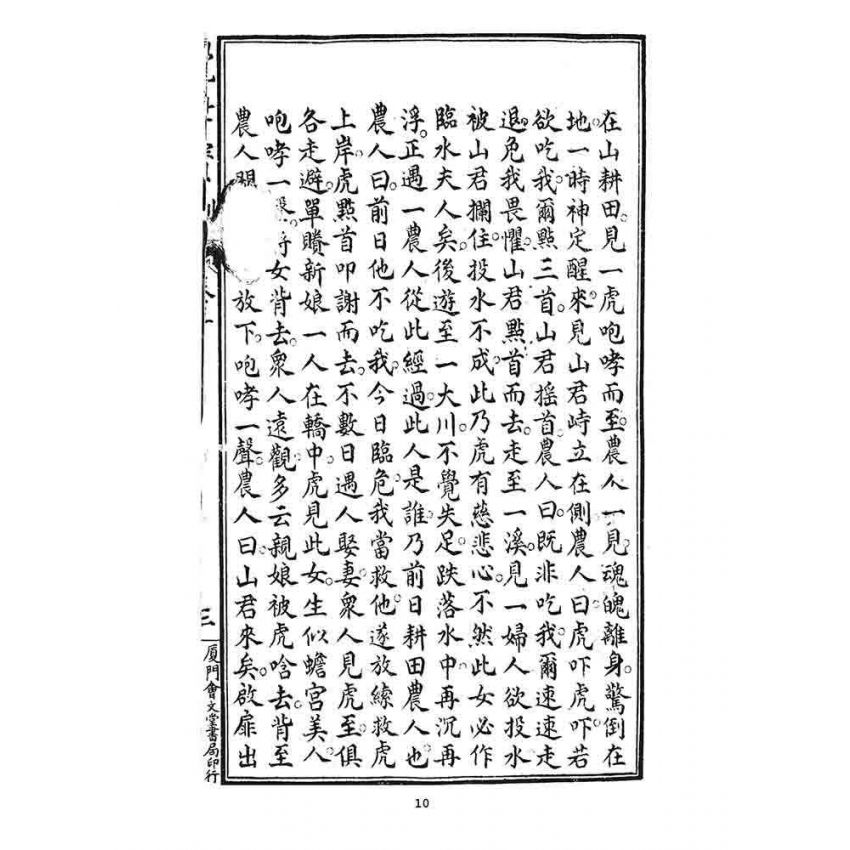 在山耕田。見一虎咆哮而至。農人一見。魂魄離身。驚倒在
地。一時神定醒來。見山君峙立在側。農人曰。虎吓虎吓。若
欲吃我。爾點三首。山君搖首。農人曰。既非吃我。爾速速走
退。免我畏懼。山君點首而去。走至一溪。見一婦人欲投水。
被山君攔住。投水不成。此乃虎有慈悲心。不然此女必作
臨水夫人矣。後遊至一大川。不覺失足。跌落水中。再沉再
浮。正遇一農人從此經過。此人是誰。乃前日耕田農人也。
農人曰。前日他不吃我。今日臨危。我當救他。遂放索救虎
上岸。虎點首叩謝而去。不數日遇人娶妻。衆人見虎至。俱
各走避。單賸新娘一人在轎中。虎見此女。生似蟾宮美人。
咆哮一聲。將女背去。衆人遠觀。多云親娘被虎啥去。背至
農人 放下。咆哮一聲。農人曰。山君來矣。啟扉出
三 廈門會文堂書局印行
10